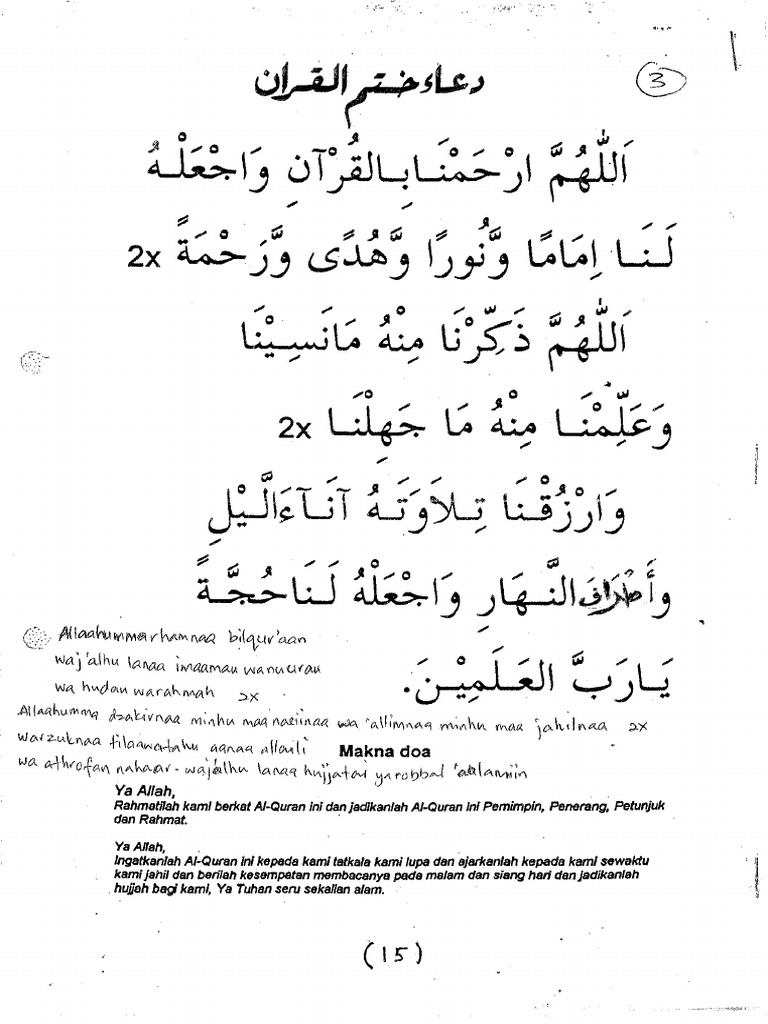 دعاء ختم القران
3
اَللّٰهُمَّ ارْحَمْنَا بِالْقُرْآنِ وَاجْعَلْهُ
لَنَا اِمَامًا وَّنُورًا وَّهُدًى وَّرَحْمَةً 2x
اَللّٰهُمَّ ذَكِّرْنَا مِنْهُ مَانَسِيْنَا
وَعَلِّمْنَا مِنْهُ مَا جَهِلْنَا 2x
وَارْزُقْنَا تِلَاوَتَهُ آنَآءَ الَّيْلِ
وَأَطْرَافَ النَّهَارِ وَاجْعَلْهُ لَنَا حُجَّةً
يَارَبَّ الْعَلَمِيْنَ.
Allaahummarhamnaa bilqur'aan
waj'alhu lanaa imaamau wanuurau
wa hudau warahmah 2x
Allaahumma dzakirnaa minhu maa nasiinaa wa 'allimnaa minhu maa jahilnaa 2x
warzuknaa tilaawatahu aanaa allaili
Makna doa
wa athrofan nahaar - waj'alhu lanaa hujjatai yarobbal 'aalamiin
Ya Allah,
Rahmatilah kami berkat Al-Quran ini dan jadikanlah Al-Quran ini Pemimpin, Penerang, Petunjuk
dan Rahmat.
Ya Allah,
Ingatkanlah Al-Quran ini kepada kami tatkala kami lupa dan ajarkanlah kepada kami sewaktu
kami jahil dan berilah kesempatan membacanya pada malam dan siang hari dan jadikanlah
hujjah bagi kami, Ya Tuhan seru sekalian alam.
(15)